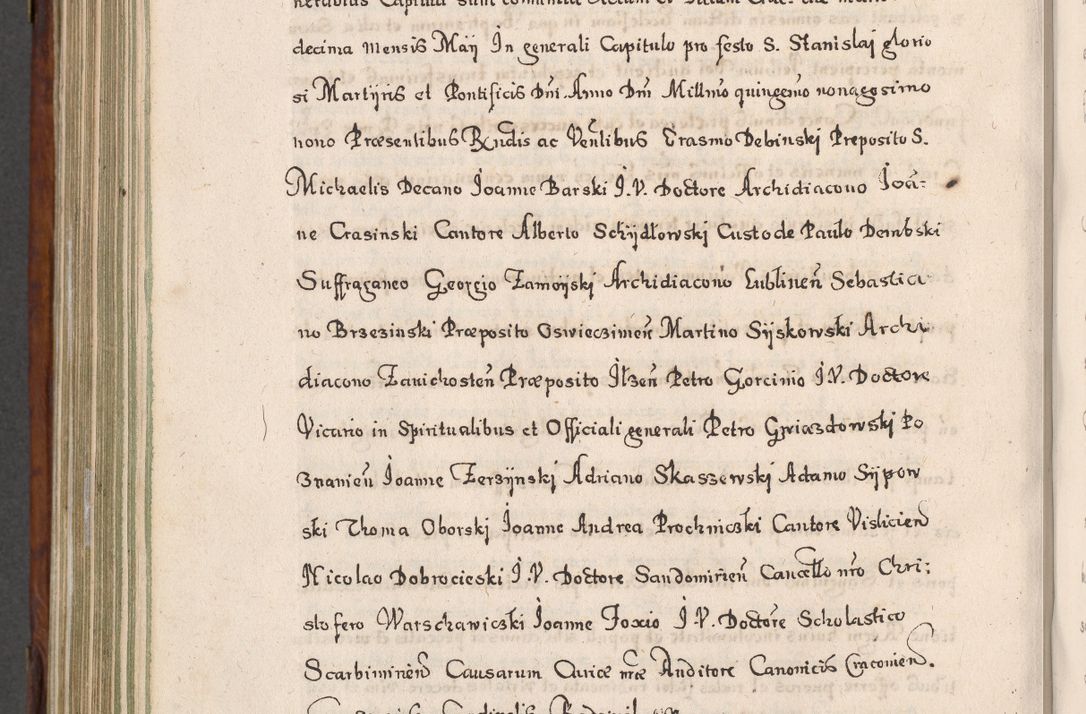 decima mensis Maij In generali Capitulo pro festo S. Stanislaj glorio
si Martijris et Pontificis Dni Anno Dni Millmo quingemo nonagesimo
nono Præsentibus Rndis ac Venlibus Erasmo Debinskj Preposito S.
Michaelis Decano Joanne Barski J.V. Doctore Archidiacono Joa-
ne Crasinski Cantore Alberto Schÿdlowskj Custode Paulo Dembski
Suffraganeo Georgio Zamoijskj Archidiacono Lublinen Sebastia
no Brzezinski Præposito Oswieczimen Martino Sijskowski Archi
diacono Zauichosten Præposito Jłzen Petro Gorcinio J.V. Doctore
Vicario in Spiritualibus et Officiali generali Petro Gwiazdowskj Po
znanien Joanne Zerzijnskj Adriano Skaszewskj Adamo Sijpow
ski Thoma Oborskj Joanne Andrea Prochniczki Cantore Vislicien
Nicolao Dobrocieski J.V. Doctore Sandomirien Cancello nro Chri:
stofero Warschawiczki Joanne Foxio J.V. Doctore Scholastico
Scarbiminen Causarum Curiæ nræ Auditore Canonicis Cracovien.